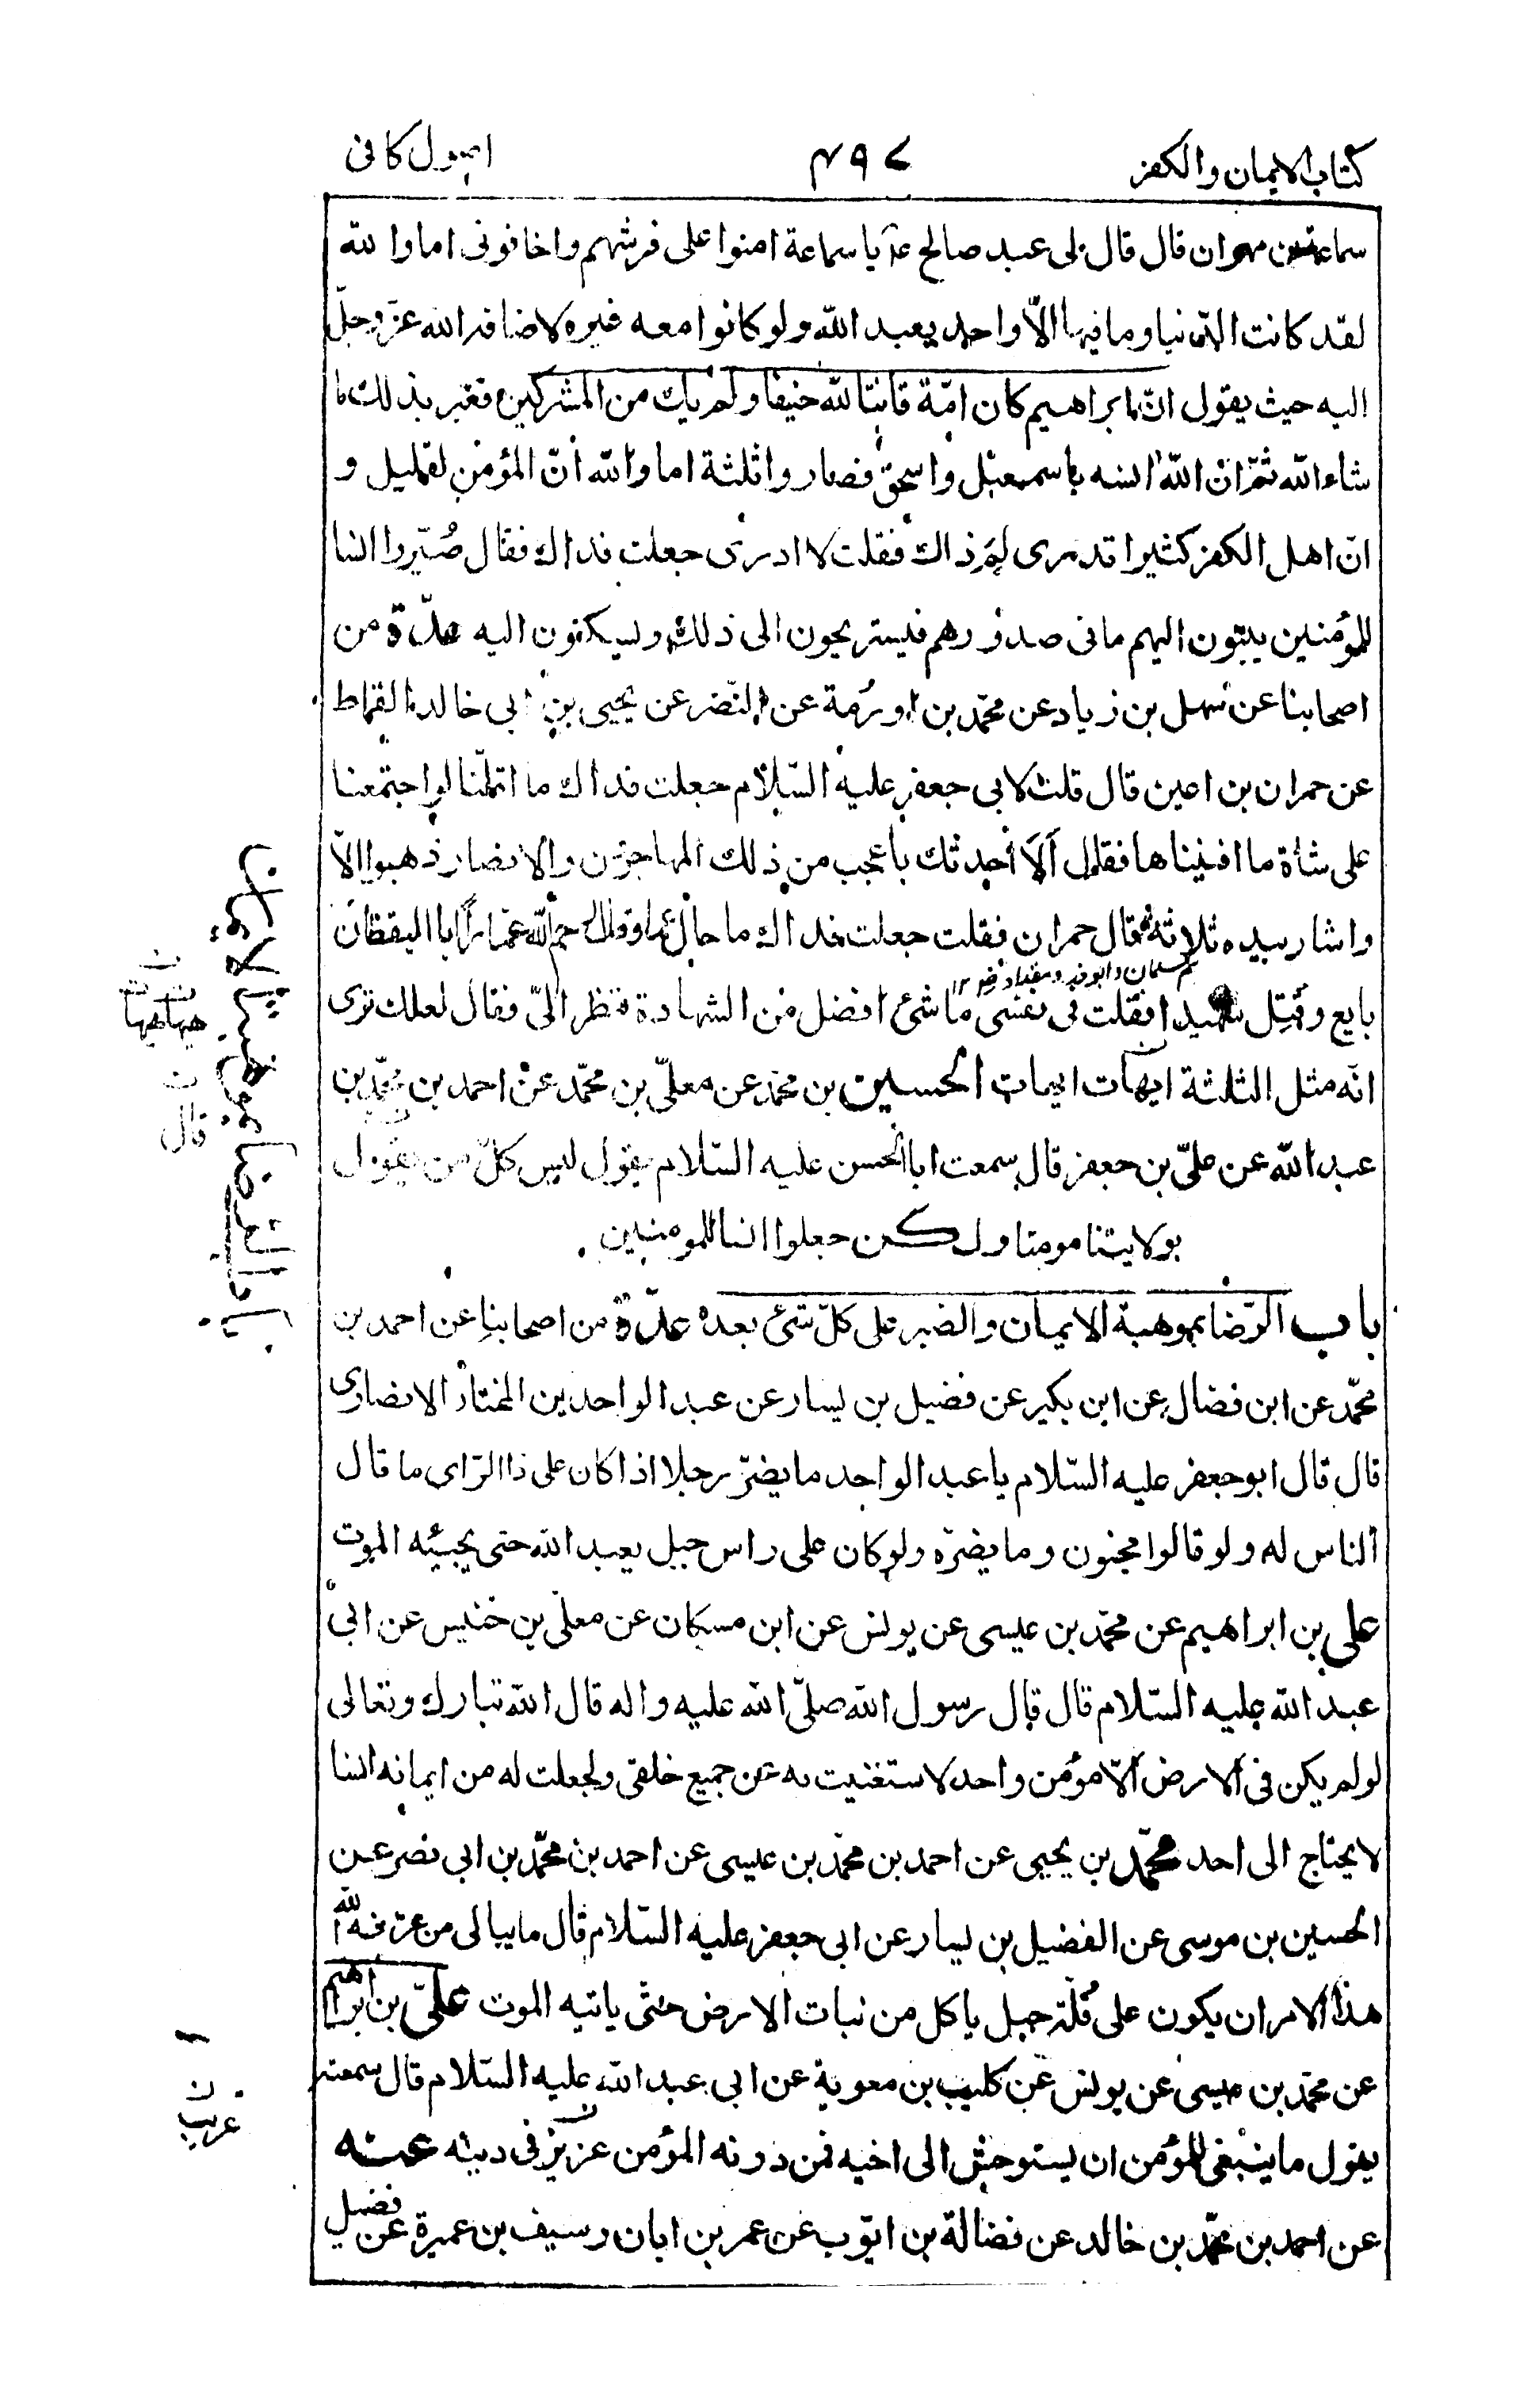 كتاب الايمان والكفر
۴۹۷
اصول كافى
سماعة بن مهران قال قال لى عبد صالح ع يا سماعة امنوا على فرشهم واخافونى اما والله
لقد كانت الدّنيا وما فيها الّا واحد يعبد الله ولو كانوا معه غيره لاضافه الله عزّ وجلّ
اليه حيث يقول انّ ابراهيم كان امّة قانتا لله حنيفا ولم يك من المشركين فغبر بذلك ما
شاء الله ثمّ انّ الله انسه باسمعيل واسحق فصاروا ثلثة اما والله انّ المؤمن لقليل و
انّ اهل الكفر كثير اتدرى لم ذاك فقلت لا ادرى جعلت فداك فقال صُيّروا انسا
للمؤمنين يبثّون اليهم ما فى صدورهم فيستريحون الى ذلك ويسكنون اليه عدّة من
اصحابنا عن سهل بن زياد عن محمّد بن اورُمة عن النّضر عن يحيى بن ابى خالد القماط
عن حمران بن اعين قال قلت لابى جعفر عليه السّلام جعلت فداك ما اقلّنا لو اجتمعنا
على شاة ما افنيناها فقال اَلا اُحدثك باعجب من ذلك المهاجرين والانصار ذهبوا الّا
واشار بيده ثلاثة قال حمران فقلت جعلت فداك ما حال عمار قال رحم الله عمّارا ابا اليقظان
هم سلمان وابوذر ومقداد رض ١٢
بايع وقُتِل شهيدا فقلت فى نفسى ما شئ افضل من الشهادة فنظر الىّ فقال لعلك ترى
انّه مثل الثلثة ايهات ايهات الحسين بن محمّد عن معلّى بن محمّد عن احمد بن محمّد بن
عبد الله عن علىّ بن جعفر قال سمعت ابا الحسن عليه السّلام يقول ليس كلّ من يقول
بولايتنا مومنا ولكن جعلوا انسا للمومنين
باب الرّضا بموهبة الايمان والصّبر على كلّ شئ بعده عدّة من اصحابنا عن احمد بن
محمّد عن ابن فضال عن ابن بكير عن فضيل بن يسار عن عبد الواحد بن المختار الانصارى
قال قال ابو جعفر عليه السّلام يا عبد الواحد ما يضرّ رجلا اذا كان على ذا الرّاى ما قال
الناس له ولو قالوا مجنون وما يضرّه ولو كان على راس جبل يعبد الله حتى يجيئه الموت
على بن ابراهيم عن محمّد بن عيسى عن يونس عن ابن مسكان عن معلى بن خنيس عن ابى
عبد الله عليه السّلام قال قال رسول الله صلّى الله عليه واله قال الله تبارك وتعالى
لو لم يكن فى الارض الّا مؤمن واحد لاستغنيت به عن جميع خلقى ولجعلت له من ايمانه انسا
لا يحتاج الى احد محمّد بن يحيى عن احمد بن محمّد بن عيسى عن احمد بن محمّد بن ابى نصر عن
الحسين بن موسى عن الفضيل بن يسار عن ابى جعفر عليه السّلام قال ما يبالى من عرّفه الله
هذا الامر ان يكون على قُلّة جبل ياكل من نبات الارض حتّى ياتيه الموت علىّ بن ابراهيم
عن محمّد بن عيسى عن يونس عن كليب بن معوية عن ابى عبد الله عليه السّلام قال سمعته
يقول ما ينبغى للمؤمن ان يستوحش الى اخيه فمن دونه المؤمن عزيز فى دينه عنه
عن احمد بن محمّد بن خالد عن فضالة بن ايّوب عن عمر بن ابان وسيف بن عميرة عن فضيل
باب الرضا بموهبة الايمان
هيهات هيهات
ن
قال
ن
عزيز